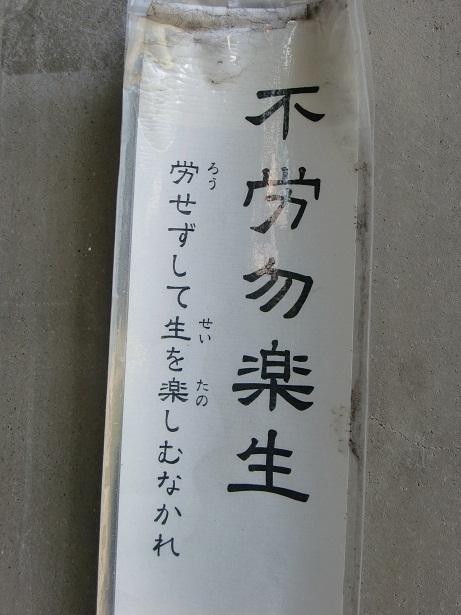 不労勿楽生
労せずして生を楽しむなかれ
ろう
せい
たの